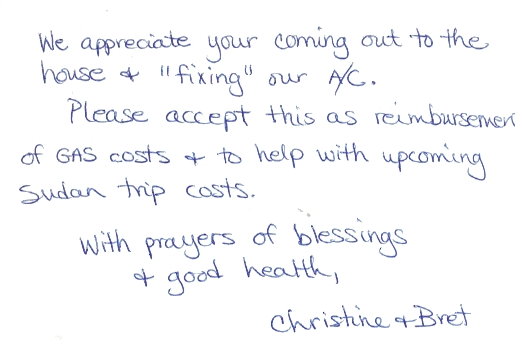 We appreciate your coming out to the
house & "fixing" our A/C.
Please accept this as reimbursemen
of GAS costs & to help with upcoming
Sudan trip costs.
With prayers of blessings
& good health,
Christine & Bret